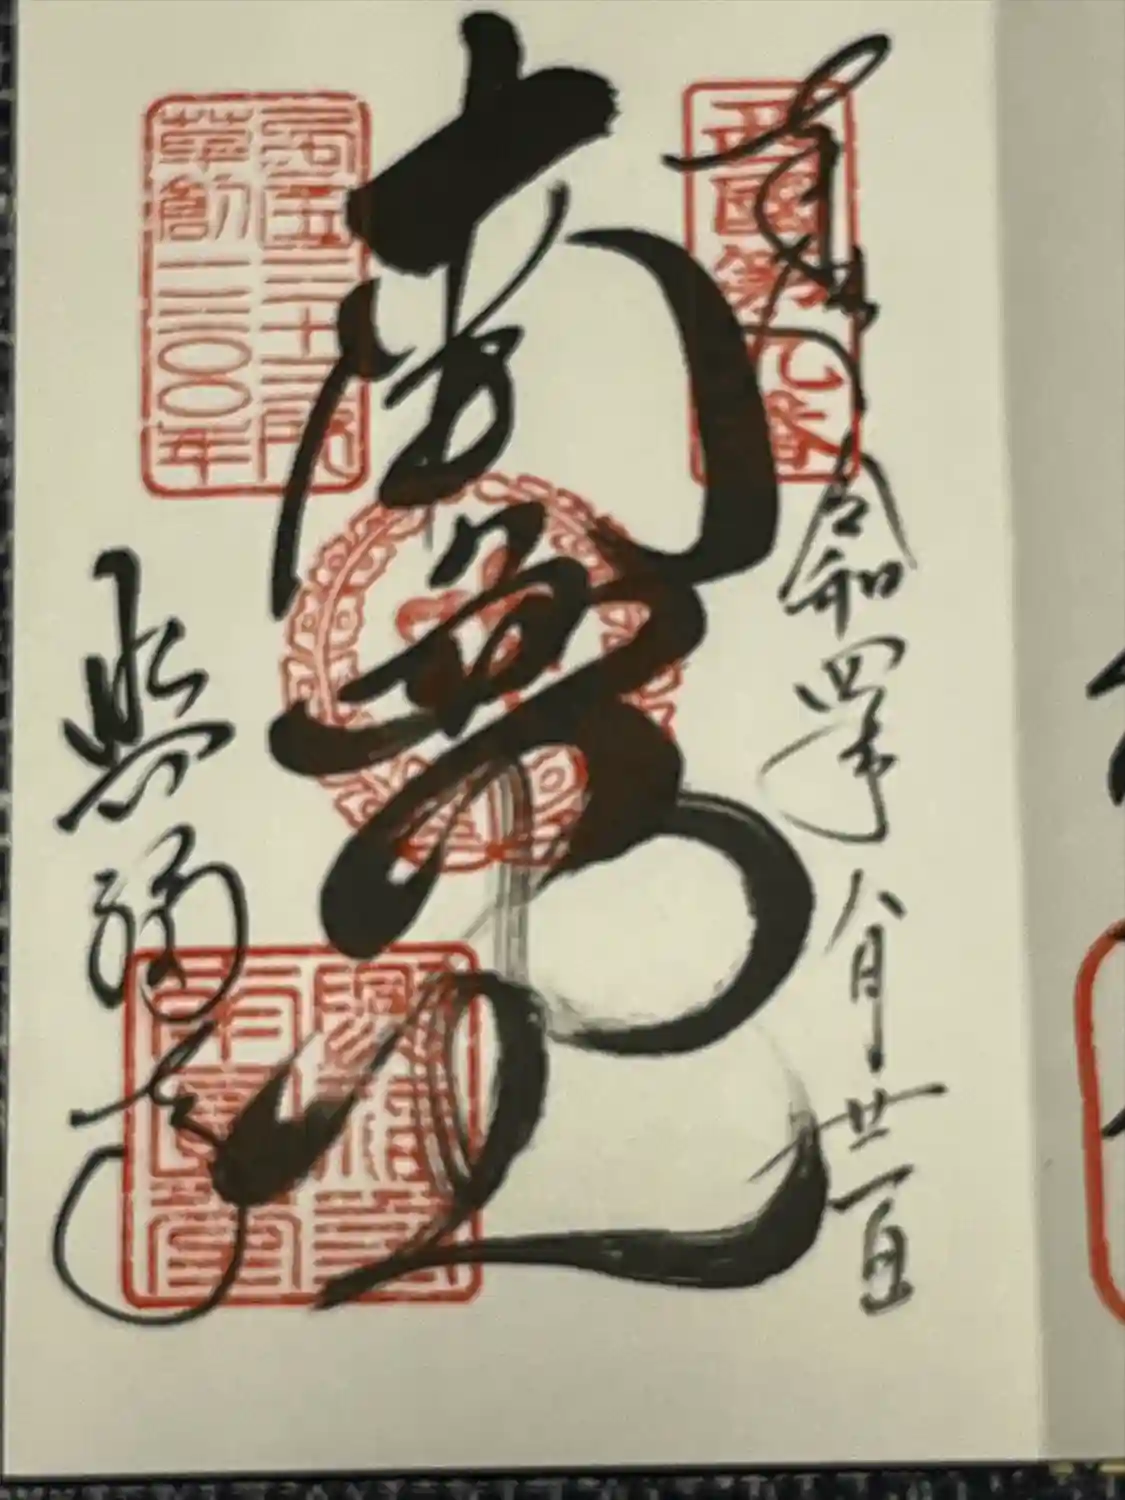 奉拝
令和四年八月廿一日
西國第九番
南圓堂
西国三十三所
草創一三〇〇年
興福寺
興福寺
南圓堂